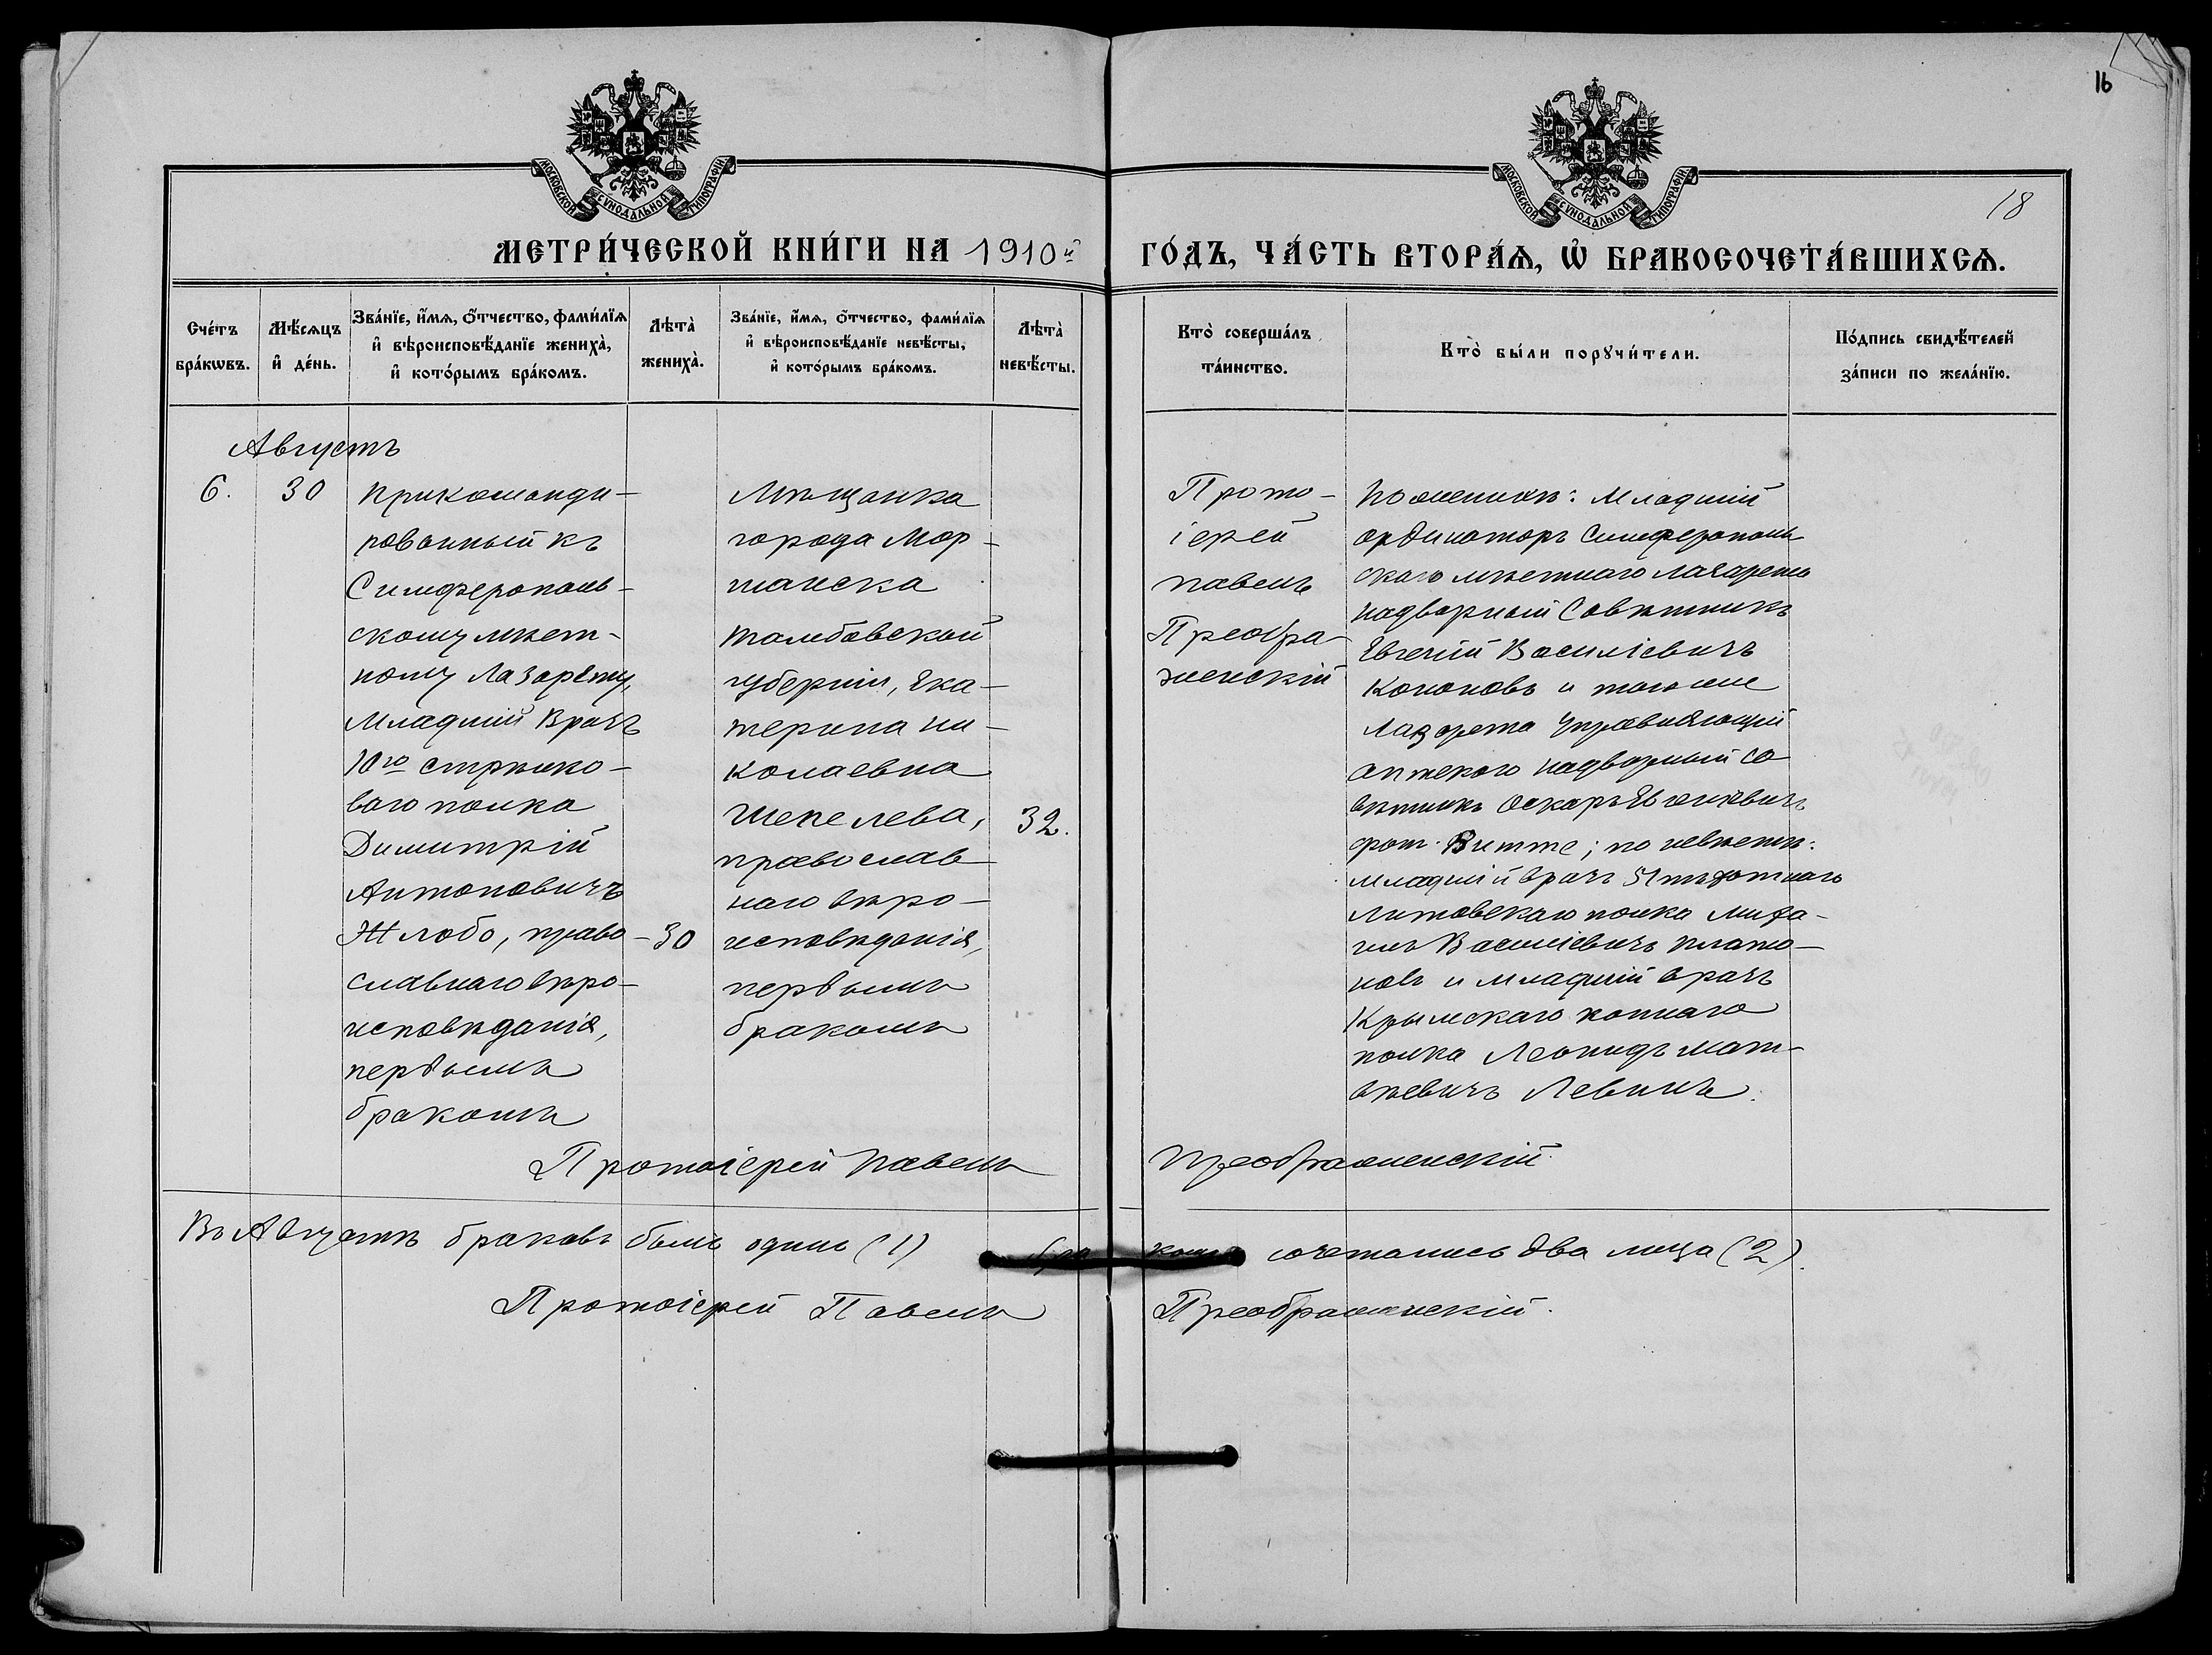 16
МОСКОВСКОЙ СѴНОДАЛЬНОЙ ТИПОГРАФІИ
МОСКОВСКОЙ СѴНОДАЛЬНОЙ ТИПОГРАФІИ
18
МЕТРИ́ЧЕСКОЙ КНИ́ГИ НА 1910й
ГО́ДЪ, ЧА́СТЬ ВТОРА́Ѧ, Ѽ БРАКОСОЧЕТА́ВШИХСѦ.
Сче́тъ
бра́кѡвъ.
Мѣ́сѧцъ
и҆ де́нь.
Зва́нїе, и҆́мѧ, ѻ҆́тчество, фами́лїѧ
и҆ вѣроисповѣ́данїе жениха̀,
и҆ кото́рымъ бра́комъ.
Лѣта̀
жениха̀.
Зва́нїе, и҆́мѧ, ѻ҆́тчество, фами́лїѧ
и҆ вѣроисповѣ́данїе невѣ́сты,
и҆ кото́рымъ бра́комъ.
Лѣта̀
невѣ́сты.
Кто̀ соверша́лъ
та́инство.
Кто̀ бы́ли порꙋчи́тели.
По́дпись свидѣ́телей
за́писи по жела́нїю.
Августъ
6.
30
Прикоманди-
рованный къ
Симферополь-
скому мѣст-
ному Лазарету,
Младшій Врачъ
10го стрѣлко-
ваго полка
Димитрій
Антоновичъ
Жлобо, право-
славнаго вѣро-
исповѣданія,
первымъ
бракомъ
30
Мѣщанка
города Мор-
шанска
Тамбовской
губерніи, Ека-
терина Ни-
колаевна
Шепелева,
православ
наго вѣро-
исповѣданія,
первымъ
бракомъ
32.
Прото-
іерей
Павелъ
Преобра-
женскій
По женихѣ: Младшій
ординаторъ Симферополь
скаго мѣстнаго лазарета
Надворный Совѣтникъ
Евгеній Василіевичъ
Кононовъ и того же
Лазарета Управляющій
Аптекою Надворный Со
вѣтникъ Оскаръ
фон Витте; по невѣстѣ:
младшій врачъ 51 пѣхотнаго
Литовскаго полка Миха-
илъ Василіевичъ Плато-
новъ и младшій врачъ
Крымскаго коннаго
полка Леонидъ Мат-
вѣевичъ Левинъ.
Протоіерей Павелъ Преображенскій.
Въ Августѣ браковъ былъ одинъ (1) бра комъ сочетались два лица (2).
Протоіерей Павелъ Преображенскій.